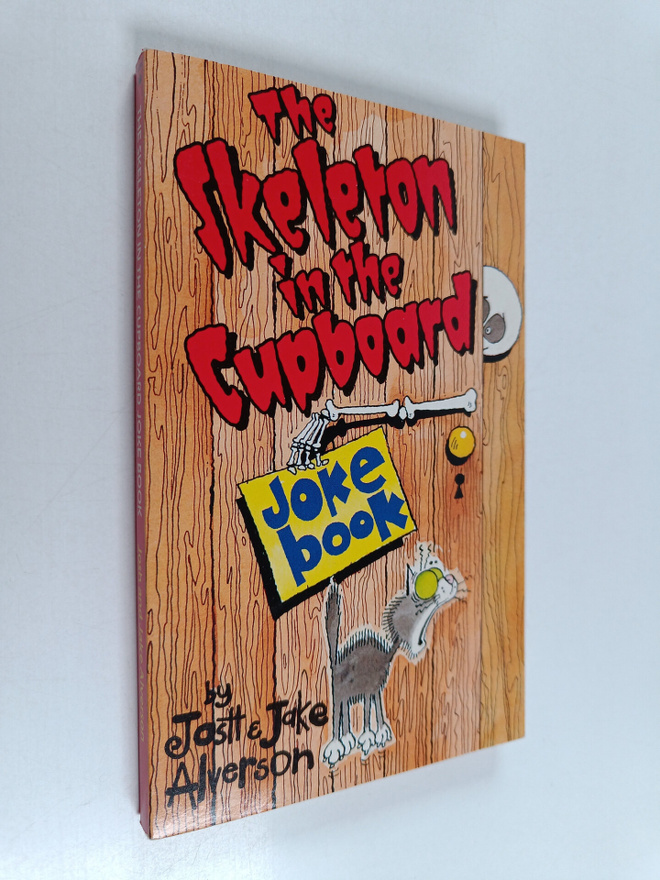 The
Skeleton
in the
Cupboard
Joke
book
by
Josh & Jake
Alverson
THE SKELETON IN THE CUPBOARD JOKE BOOK